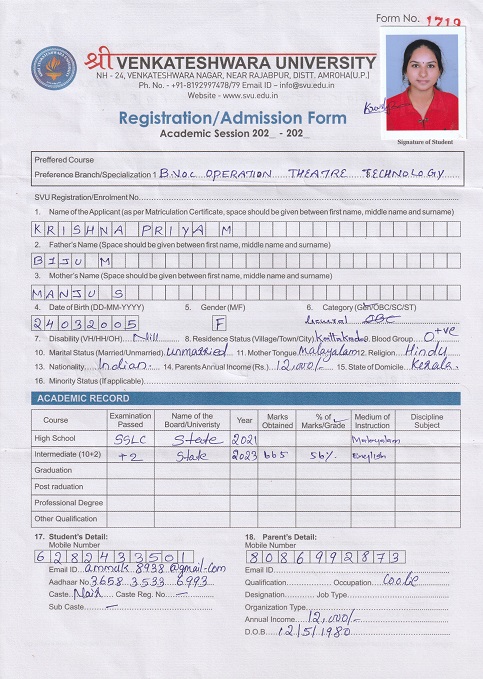 Form No. 1719
श्री VENKATESHWARA UNIVERSITY
NH - 24, VENKATESHWARA NAGAR, NEAR RAJABPUR, DISTT. AMROHA(U.P.)
Ph. No. - +91-8192997478/79 Email ID – info@svu.edu.in
Website - www.svu.edu.in
Registration/Admission Form
Academic Session 202_ - 202_
Signature of Student
Preffered Course
Preference Branch/Specialization 1 B.VOC OPERATION THEATRE TECHNOLOGY
SVU Registration/Enrolment No.
1. Name of the Applicant (as per Matriculation Certificate, space should be given between first name, middle name and surname)
KRISHNA PRIYA M
2. Father's Name (Space should be given between first name, middle name and surname)
BIJU M
3. Mother's Name (Space should be given between first name, middle name and surname)
MANJU S
4. Date of Birth (DD-MM-YYYY) 5. Gender (M/F) 6. Category (Gen/OBC/SC/ST)
24032005 F General OBC
7. Disability (VH/HH/OH) Nill 8. Residence Status (Village/Town/City) 9. Blood Group O+ve
10. Marital Status (Married/Unmarried) unmarried 11. Mother Tongue Malayalam 12. Religion Hindu
13. Nationality Indian 14. Parents Annual Income (Rs.) 12,000/- 15. State of Domicile Kerala
16. Minority Status (If applicable)
ACADEMIC RECORD
Course Examination Passed Name of the Board/Univeristy Year Marks Obtained % of Marks/Grade Medium of Instruction Discipline Subject
High School SSLC State 2021 Malayalam
Intermediate (10+2) +2 State 2023 665 56% English
Graduation
Post raduation
Professional Degree
Other Qualification
17. Student's Detail: 18. Parent's Detail:
Mobile Number Mobile Number
6282433501 8086992873
Email ID ammuk8938@gmail.com Email ID
Aadhar No. 3658 3533 6993 Qualification Occupation Coolie
Caste Nair Caste Reg. No. – Designation Job Type
Sub Caste – Organization Type
Annual Income 12,000/-
D.O.B. 12/5/1980